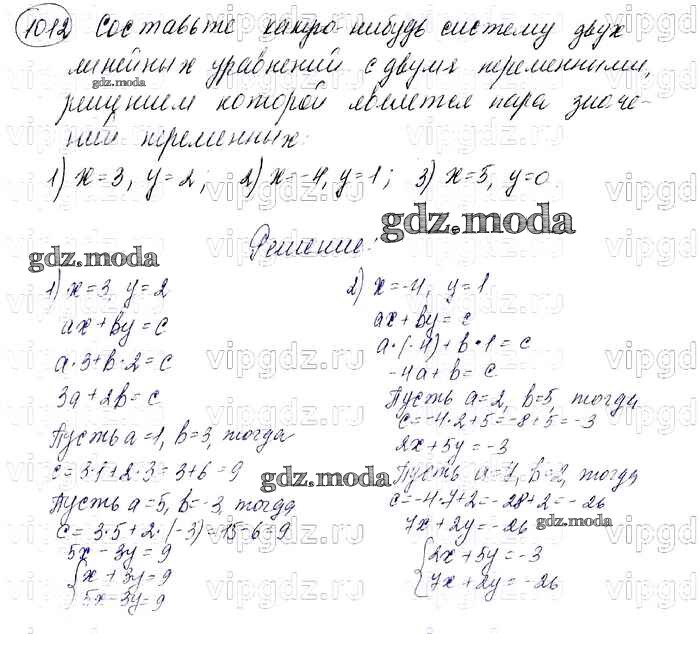 1012 Составьте какую-нибудь систему двух
линейных уравнений с двумя переменными,
решением которой является пара значе-
ний переменных:
1) x=3, y=2; 2) x=-4, y=1; 3) x=5, y=0
gdz.moda
Решение:
gdz.moda
1) x=3, y=2
ax+by=c
a·3+b·2=c
3a+2b=c
Пусть a=1, b=3, тогда
c=3·1+2·3=3+6=9
Пусть a=5, b=-3, тогда
c=3·5+2·(-3)=15-6=9
5x-3y=9
{x+3y=9
5x-3y=9
2) x=-4, y=1
ax+by=c
a·(-4)+b·1=c
-4a+b=c
Пусть a=2, b=5, тогда
c=-4·2+5=-8+5=-3
2x+5y=-3
Пусть a=7, b=2, тогда
c=-4·7+2=-28+2=-26
7x+2y=-26
{2x+5y=-3
7x+2y=-26
gdz.moda
gdz.moda
gdz.moda
vipgdz.ru